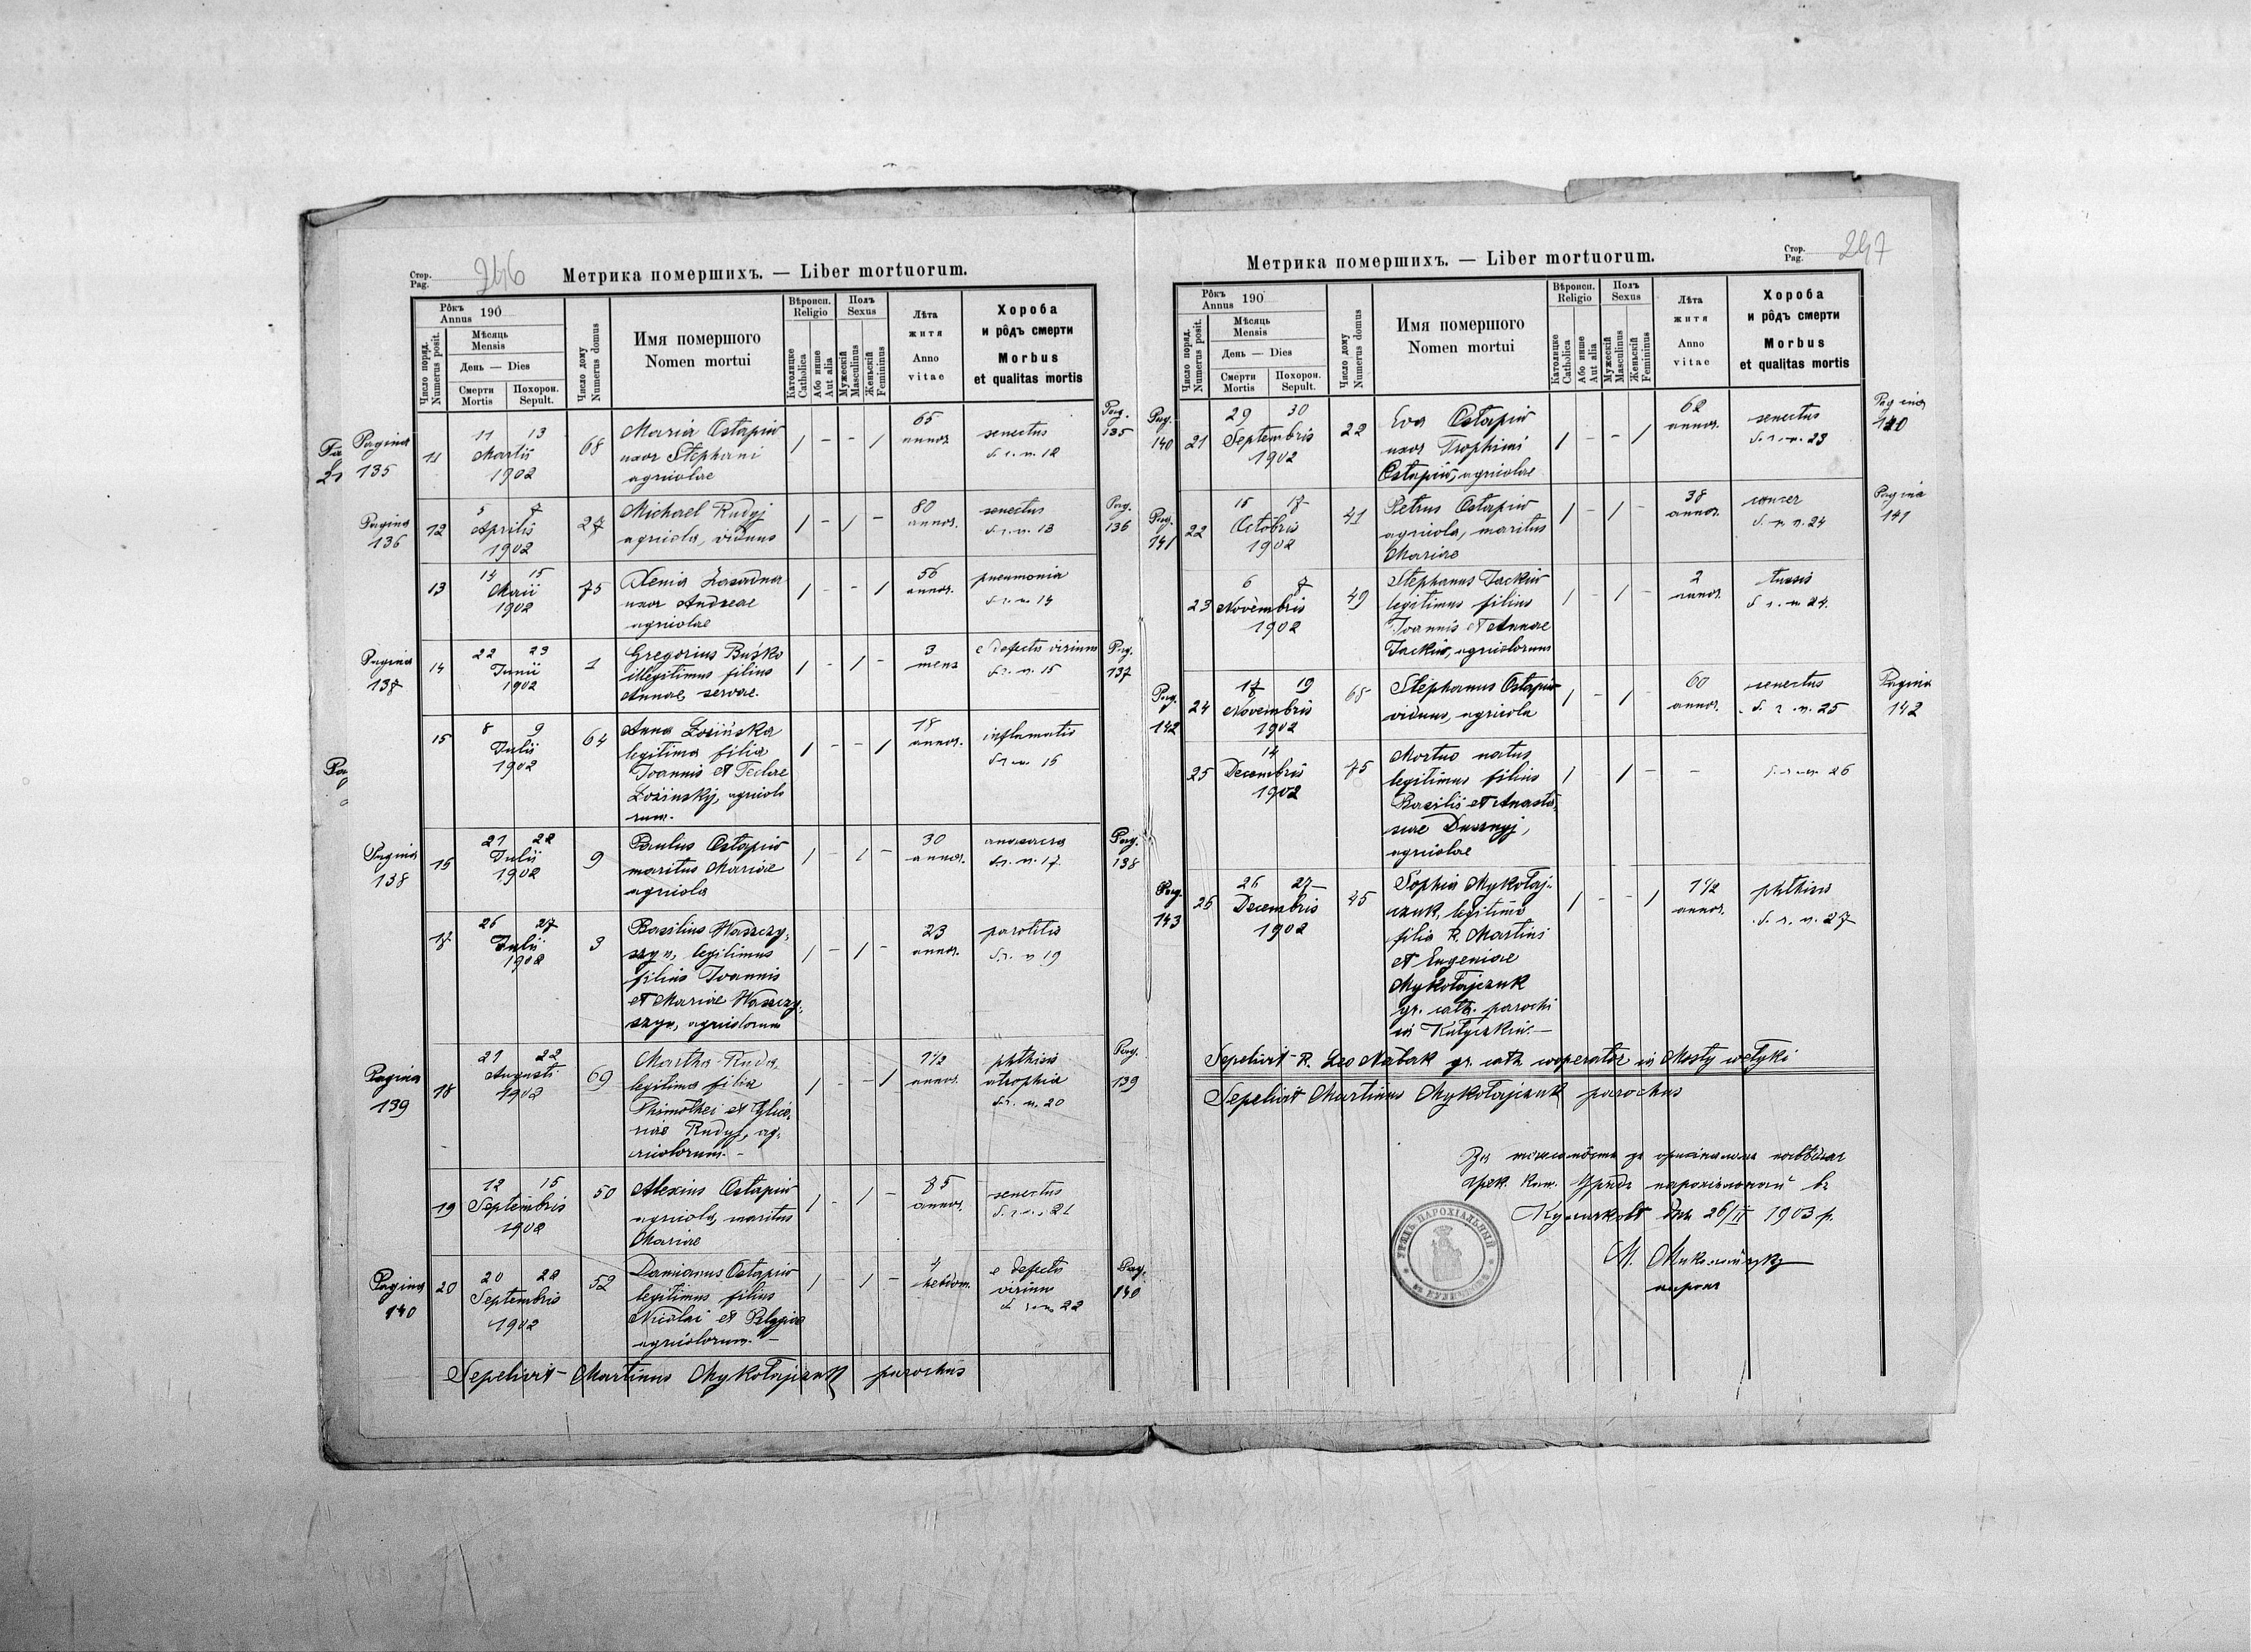 Стор.
Pag.
246
Метрика помершихъ. — Liber mortuorum.
Рôкъ
Annus 190
Число поряд.
Numerus posit.
Мѣсяць
Mensis
День — Dies
Смерти
Mortis
Похорон.
Sepult.
Число дому
Numerus domus
Имя помершого
Nomen mortui
Вѣроисп.
Religio
Католицке
Catholica
Або инше
Aut alia
Полъ
Sexus
Мужескій
Masculinus
Женьскій
Femininus
Лѣта
житя
Anno
vitae
Хороба
и рôдъ смерти
Morbus
et qualitas mortis
Pagina
135
11
11 13
Martii
1902
68
Maria Ostapiw
uxor Stephani
agricolae
1 - - 1
65
annor.
senectus
S. r. n. 12
Pag.
135
Pagina
136
12
5 7
Aprilis
1902
27
Michael Rudyj
agricola, viduus
1 - 1 -
80
annor.
senectus
S. r. n. 13
Pag.
136
13
14 15
Maii
1902
75
Xenia
uxor Andreae
agricolae
1 - - 1
56
annor.
pneumonia
S. r. n. 14
Pagina
137
14
22 23
Junii
1902
1
Gregorius Buśko
illegitimus filius
Annae, servae.
1 - 1 -
3
mens
e defectu virium
S. r. n. 15
Pag.
137
15
8 9
Julii
1902
64
Anna Łozińska
legitima filia
Joannis et Teclae
Łozinskij, agricolo
rum.
1 - - 1
18
annor.
inflamatio
S. r. n. 16
Pagina
138
16
21 22
Julii
1902
9
Paulus Ostapiw
maritus Mariae
agricola
1 - 1 -
30
annor.
anasarca
S. r. n. 17
Pag.
138
17
26 27
Julii
1902
3
Basilius Waszczy-
szyn, legitimus
filius Joannis
et Mariae Waszczy-
szyn, agricolarum
1 - 1 -
23
annor.
parotitis
S. r. n 19
Pagina
139
18
21 22
Augusti
1902
69
Martha Ruda
legitima filia
Thimothei et Glice-
riae Rudyj, ag-
ricolorum. -
1 - - 1
1 1/2
annor.
phthisis
atrophia
S. r. n. 20
Pag.
139
19
12 15
Septembris
1902
50
Alexius Ostapiw
agricola, maritus
Mariae
1 - 1 -
85
annor.
senectus
S. r. n. 21
Pagina
140
20
20 22
Septembris
1902
52
Damianus Ostapiw
legitimus filius
Nicolai et Pelagia
agricolorum. -
1 - 1 -
4
hebdom.
e defectu
virium
S. r. n. 22
Pag.
140
Sepelivit Martinus Mykołajczuk parochus
Стор.
Pag.
247
Метрика помершихъ. — Liber mortuorum.
Рôкъ
Annus 190
Число поряд.
Numerus posit.
Мѣсяць
Mensis
День — Dies
Смерти
Mortis
Похорон.
Sepult.
Число дому
Numerus domus
Имя помершого
Nomen mortui
Вѣроисп.
Religio
Католицке
Catholica
Або инше
Aut alia
Полъ
Sexus
Мужескій
Masculinus
Женьскій
Femininus
Лѣта
житя
Anno
vitae
Хороба
и рôдъ смерти
Morbus
et qualitas mortis
Pag.
140
21
29 30
Septembris
1902
22
Eva Ostapiw
uxor Trophimi
Ostapiw, agricolae
1 - - 1
62
annor.
senectus
S. r. n. 23
Pagina
140
Pag.
141
22
15 17
Octobris
1902
41
Petrus Ostapiw
agricola, maritus
Mariae
1 - 1 -
38
annor.
cancer
S. r. n. 24
Pagina
141
23
6 7
Novembris
1902
49
Stephanus Jackiw
legitimus filius
Joannis et Annae
Jackiw, agricolorum
1 - 1 -
2
annor.
tussis
S. r. n 24.
Pag.
142
24
17 19
Novembris
1902
68
Stephanus Ostapiw
viduus, agricola
1 - 1 -
60
annor.
senectus
S. r. n. 25
Pagina
142
25
14
Decembris
1902
75
Mortuo natus
legitimus filius
Basilii et Anasta-
siae
agricolae
1 - 1 - -
S. r. n. 26
Pag.
143
26
26 27
Decembris
1902
45
Sophia Mykołaj-
czuk, legitima
filia R. Martini
et Eugeniae
Mykołajczuk
gr. cath. parochi
in Kuliczkiw. —
1 - - 1
1 1/2
annor.
phthisis
S. r. n. 27
Sepelivit R. Leo Nabak gr. cath cooperator in Mosty wełyki
Sepelivit Martinus Mykołajczuk parochus
За згоднôсть зъ оригиналомъ посвѣдчає
грек. кат. Урядъ парохіяльный въ
Куличковѣ дня 26/II 1903 р.
М. Миколайчукъ
парохъ
УРЯДЪ ПАРОХІАЛЬНЫЙ